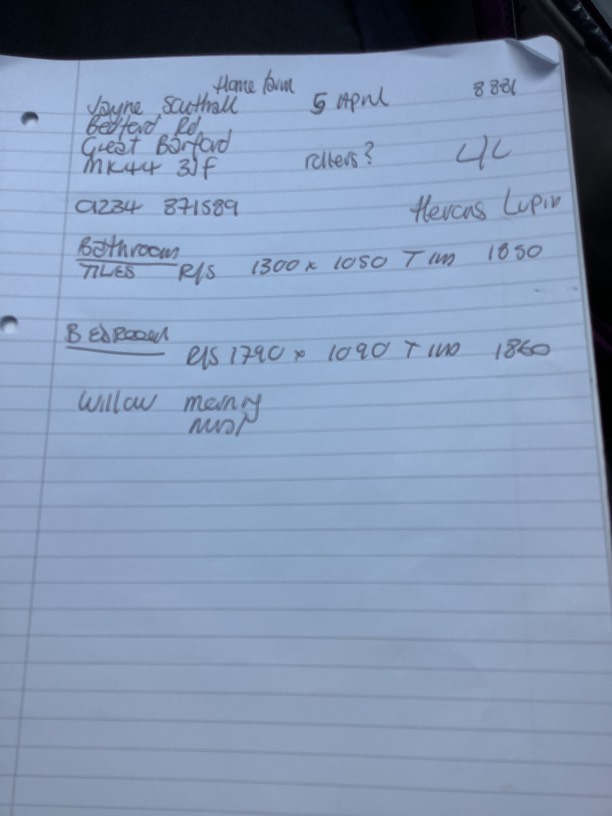 Home farm
Jayne Southall 5 April 8881
Bedford Rd
Great Barford
MK44 3JF rollers? L/L
01234 871589
Lupin
Bathroom
TILES R/S 1300 x 1050 T 1850
BEDROOM
R/S 1790 x 1090 T 1860
Willow